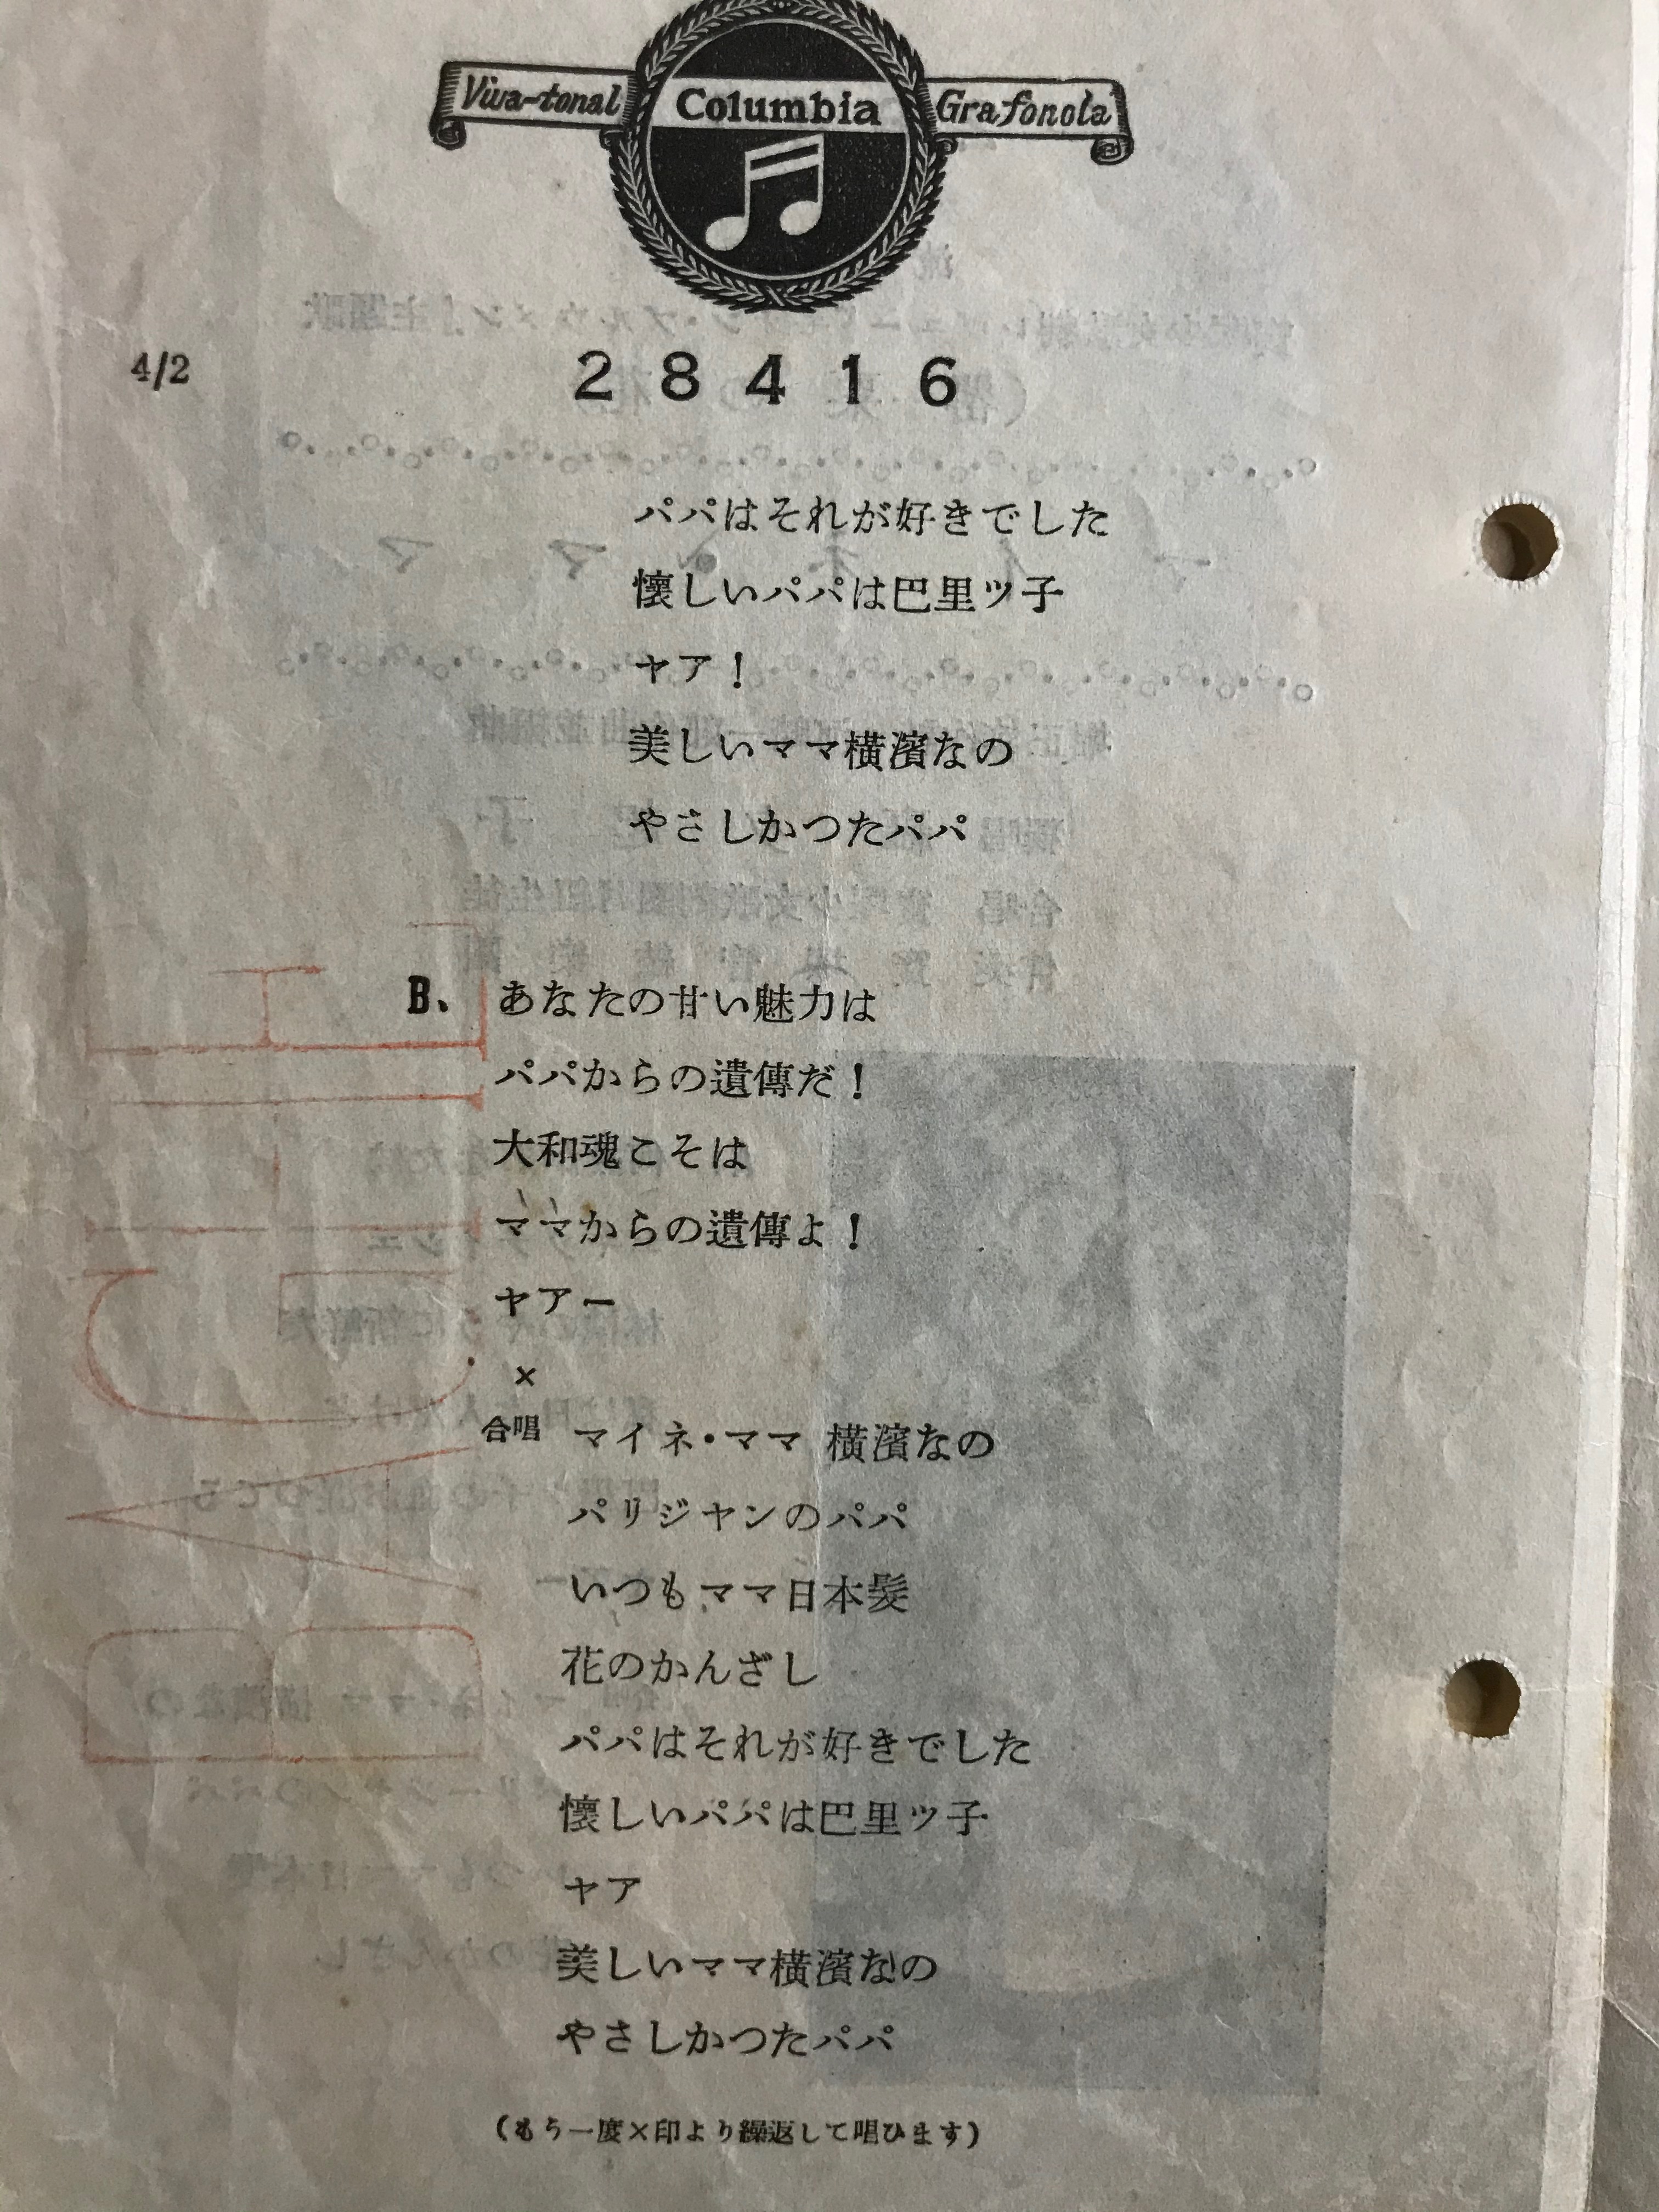 Viva-tonal Columbia Grafonola
4/2
28416
パパはそれが好きでした
懷しいパパは巴里ツ子
ヤア！
美しいママ橫濱なの
やさしかつたパパ
B、あなたの甘い魅力は
パパからの遺傳だ！
大和魂こそは
ママからの遺傳よ！
ヤアー
×
合唱 マイネ・ママ 橫濱なの
パリジヤンのパパ
いつもママ日本髮
花のかんざし
パパはそれが好きでした
懷しいパパは巴里ツ子
ヤア
美しいママ橫濱なの
やさしかつたパパ
(もう一度×印より繰返して唱ひます)